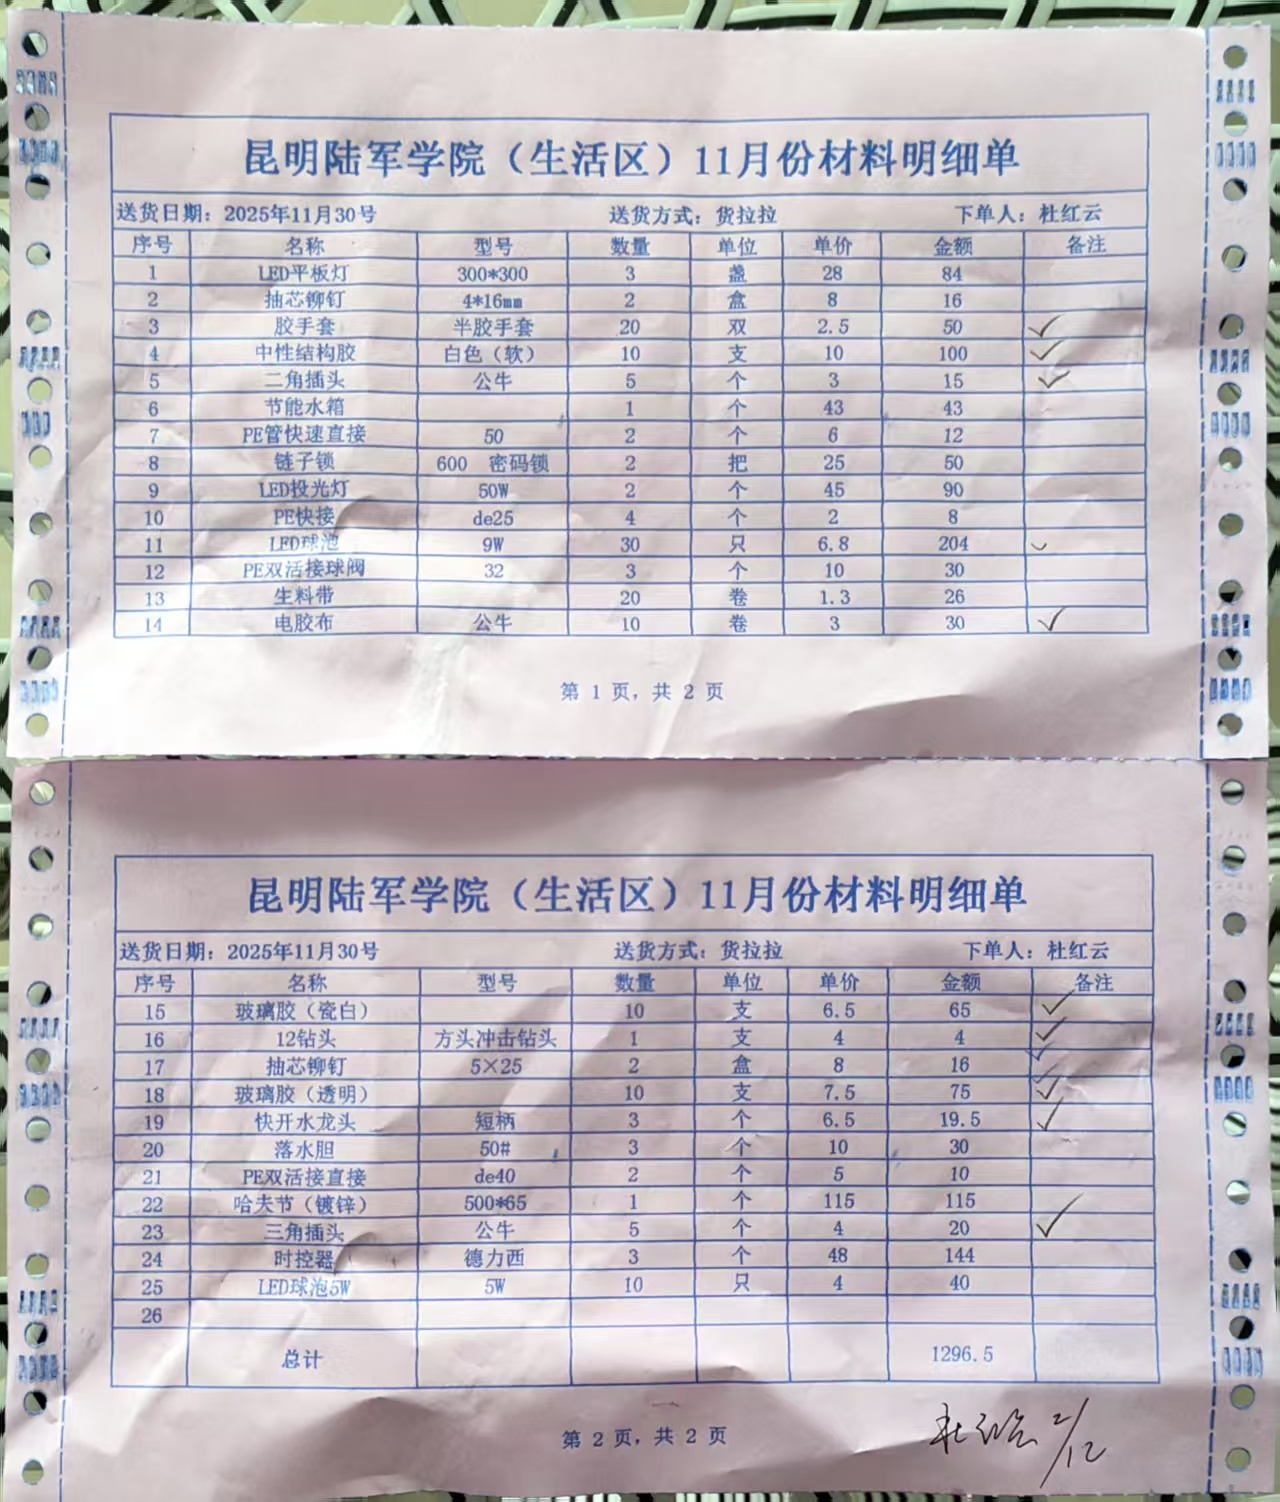 昆明陆军学院（生活区）11月份材料明细单
送货日期：2025年11月30号 送货方式：货拉拉 下单人：杜红云
序号 名称 型号 数量 单位 单价 金额 备注
1 LED平板灯 300*300 3 盏 28 84
2 抽芯铆钉 4*16mm 2 盒 8 16
3 胶手套 半胶手套 20 双 2.5 50 ✓
4 中性结构胶 白色（软） 10 支 10 100 ✓
5 二角插头 公牛 5 个 3 15 ✓
6 节能水箱 1 个 43 43
7 PE管快速直接 50 2 个 6 12
8 链子锁 600 密码锁 2 把 25 50
9 LED投光灯 50W 2 个 45 90
10 PE快接 de25 4 个 2 8
11 LED球泡 9W 30 只 6.8 204 ✓
12 PE双活接球阀 32 3 个 10 30
13 生料带 20 卷 1.3 26
14 电胶布 公牛 10 卷 3 30 ✓
第 1 页，共 2 页
昆明陆军学院（生活区）11月份材料明细单
送货日期：2025年11月30号 送货方式：货拉拉 下单人：杜红云
序号 名称 型号 数量 单位 单价 金额 备注
15 玻璃胶（瓷白） 10 支 6.5 65 ✓
16 12钻头 方头冲击钻头 1 支 4 4 ✓
17 抽芯铆钉 5×25 2 盒 8 16 ✓
18 玻璃胶（透明） 10 支 7.5 75 ✓
19 快开水龙头 短柄 3 个 6.5 19.5 ✓
20 落水胆 50# 3 个 10 30
21 PE双活接直接 de40 2 个 5 10
22 哈夫节（镀锌） 500*65 1 个 115 115
23 三角插头 公牛 5 个 4 20 ✓
24 时控器 德力西 3 个 48 144
25 LED球泡5W 5W 10 只 4 40
26
总计 1296.5
第 2 页，共 2 页
杜红云 2/12